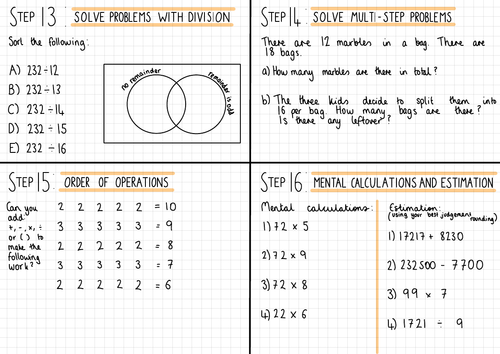 STEP 13: SOLVE PROBLEMS WITH DIVISION
Sort the following:
A) 232÷12
B) 232÷13
C) 232÷14
D) 232÷15
E) 232÷16
no remainder
remainder is odd
STEP 14: SOLVE MULTI-STEP PROBLEMS
There are 12 marbles in a bag. There are
18 bags.
a) How many marbles are there in total?
b) The three kids decide to split them into
16 per bag. How many bags are there?
Is there any leftover?
STEP 15: ORDER OF OPERATIONS
Can you
add
+, -, x, ÷
or ( ) to
make the
following
work?
2 2 2 2 2 = 10
3 3 3 3 3 = 9
2 2 2 2 2 = 8
3 3 3 3 3 = 7
2 2 2 2 2 = 6
STEP 16: MENTAL CALCULATIONS AND ESTIMATION
Mental calculations:
1) 72 x 5
2) 72 x 9
3) 72 x 8
4) 22 x 6
Estimation:
(using your best judgement
rounding)
1) 17217 + 8230
2) 232500 - 7700
3) 99 x 7
4) 1721 ÷ 9